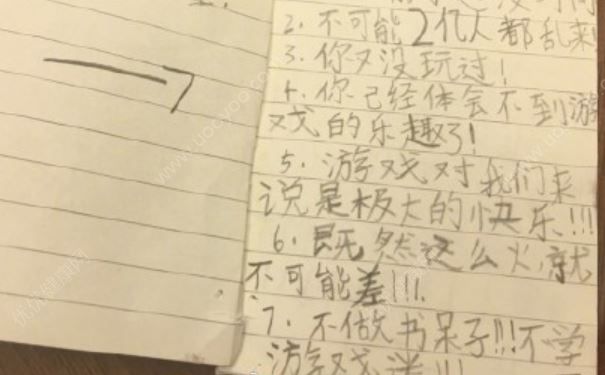 2. 不可能2亿人都乱来!
3. 你又没玩过!
4. 你已经体会不到游
戏的乐趣了!
5. 游戏对我们来
说是极大的快乐!!!
6. 既然这么火,就
不可能差!!!
7. 不做书呆子!!!不学
游戏